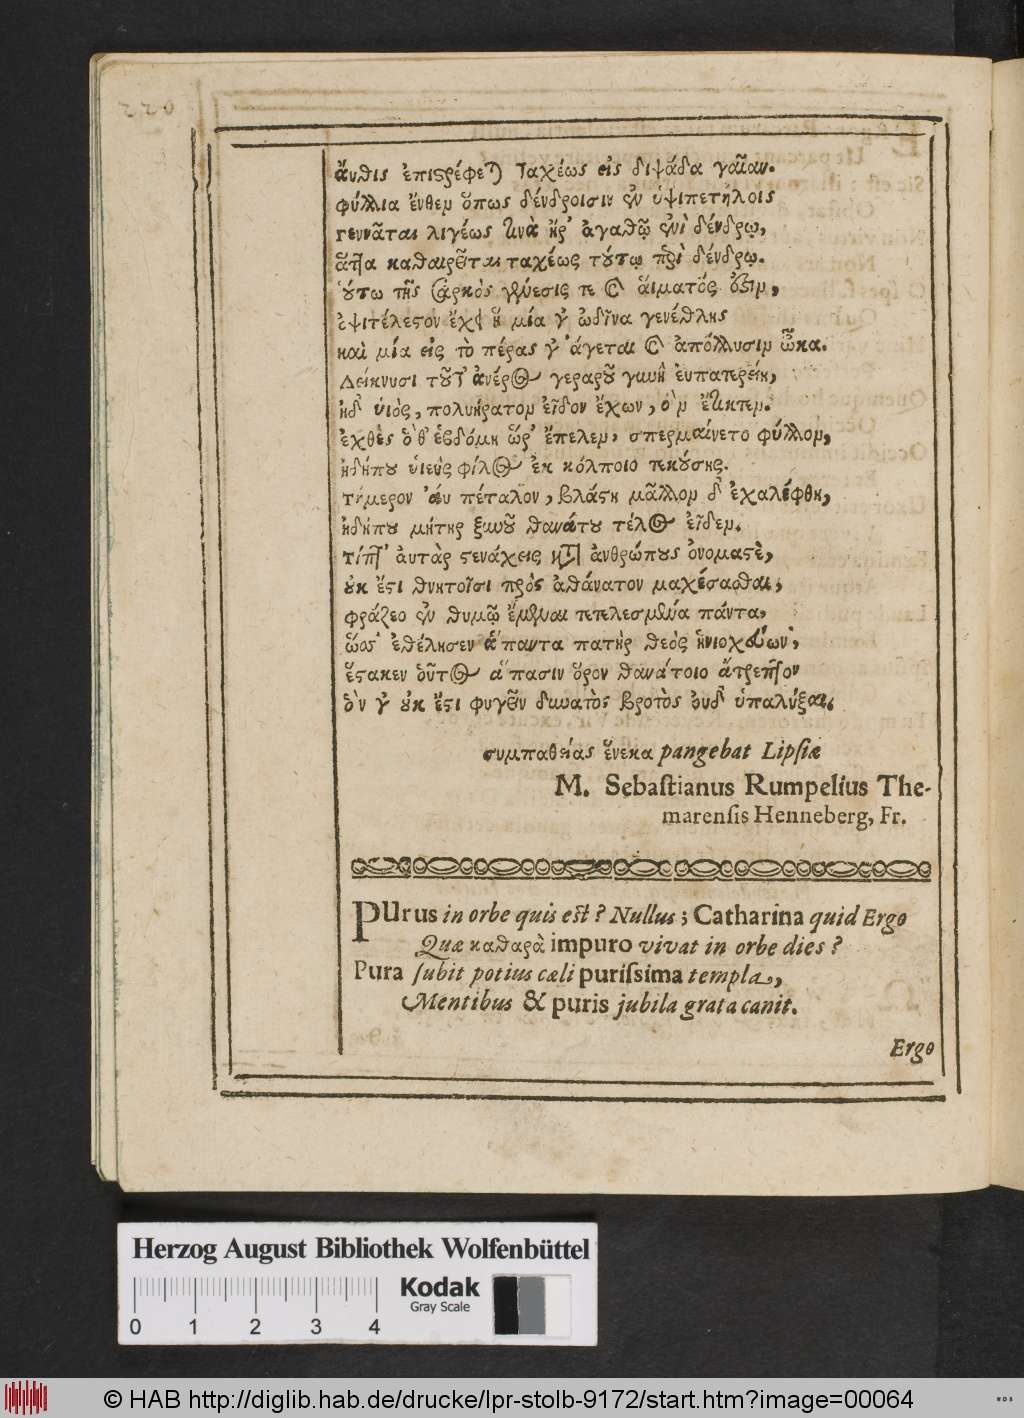 220
ἄυθις ἐπιστρέφεται ταχέως εἰς διψάδα γαῖαν.
φύλλια ἔνθεμ ὅπως δένδροισιν ἐν ὑψιπετήλοις
γεννᾶται λιγέως ἀγαθῷ ἐνὶ δένδρῳ,
καθαιρεῖται ταχέως τούτῳ περὶ δένδρῳ.
ὅυτω τῆς σαρκὸς γένεσις τε καὶ ἅιματός ὄξιμ,
ὀψιτέλεστον ἔχει ἡ μία γ' ὠδῖνα γενέθλης
καὶ μία εἰς τὸ πέρας γ' ἄγεται καὶ ἀπόλλυσιμ ὦκα.
Δείκνυσι τοῦτ' ἀνέρος γεραροῦ γυνὴ ἐυπατερείη,
ἠδ' ὑιὸς, πολυήρατομ εἶδον ἔχων, ὅμ ἔτικτεμ.
ἐχθὲς ὅθ' ἑβδόμη ὥρ' ἔπελεμ, σπερμαίνετο φύλλομ,
ἠδήπου ὑιεὺς φίλος ἐκ κόλποιο τεκούσης.
τήμερον ἄυ πέταλον, βλάστη μᾶλλομ δ' ἐχαλέφθη,
ἠδήπου μήτηρ ξυνοῦ θανάτου τέλος εἶδεμ.
τίπτ' ἀυτὰρ στενάχεις κατ' ἀνθρώπους ὀνομαστὲ,
οὐκ ἔστι θνητοῖσι πρὸς ἀθάνατον μαχέσασθαι,
φράζεο ἐν θυμῷ ἔμμεναι τετελεσμένα πάντα,
ὥσσ' ἐθέλησεν ἅπαντα πατὴρ θεός ἡνιοχεύων,
ἕστακεν ὅυτος ἅπασιν ὅρον θανάτοιο ἄτρεπτον
ὃν γ' οὐκ ἔστι φυγεῖν δυνατὸς βροτὸς οὐδ' ὑπαλύξαι.
συμπαθείας ἕνεκα pangebat Lipsiæ
M. Sebastianus Rumpelius The-
marensis Henneberg, Fr.
PUrus in orbe quis est? Nullus; Catharina quid Ergo
Quæ καθαρὰ impuro vivat in orbe dies?
Pura subit potius cæli purissima templa,
Mentibus & puris jubila grata canit.
Ergo
Herzog August Bibliothek Wolfenbüttel
0 1 2 3 4
Kodak
Gray Scale
© HAB http://diglib.hab.de/drucke/lpr-stolb-9172/start.htm?image=00064